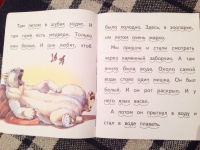 Там летом в шубах жарко. И
там тоже есть медведи. Только
они белые. И они любят, чтоб
было холодно. Здесь, в зоопарке,
им летом очень жарко.
Мы пришли и стали смотреть
через каменный заборчик. А там
много было воды. Около самой
воды стоял один мишка. Он был
белый. И он рот раскрыл. И у
него язык висел.
А потом он прыгнул в воду и
стал в воде плавать.